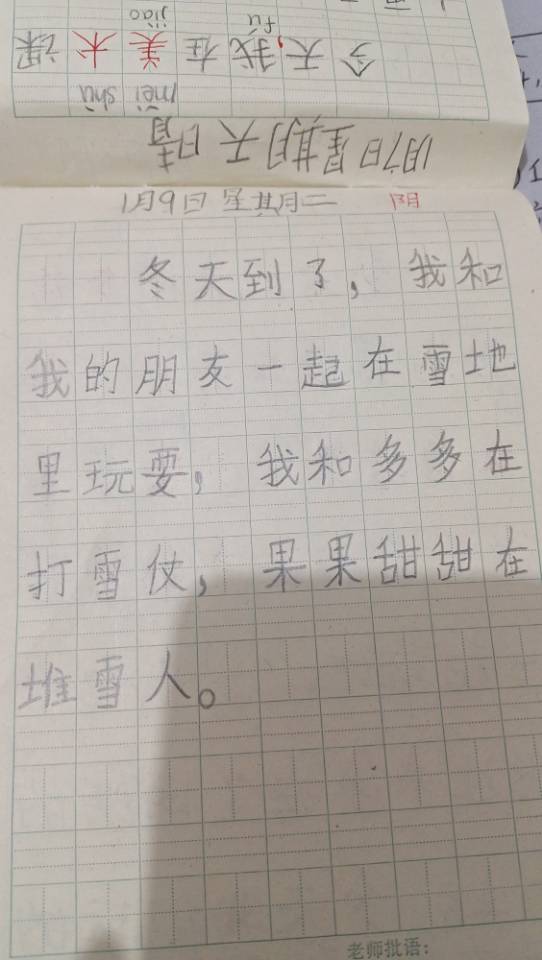 1月7日星期天晴
měi shù
今天，我在美术课
fú jiāo
1月9日 星期二 阴
冬天到了，我和
我的朋友一起在雪地
里玩耍，我和多多在
打雪仗，果果甜甜在
堆雪人。
老师批语：